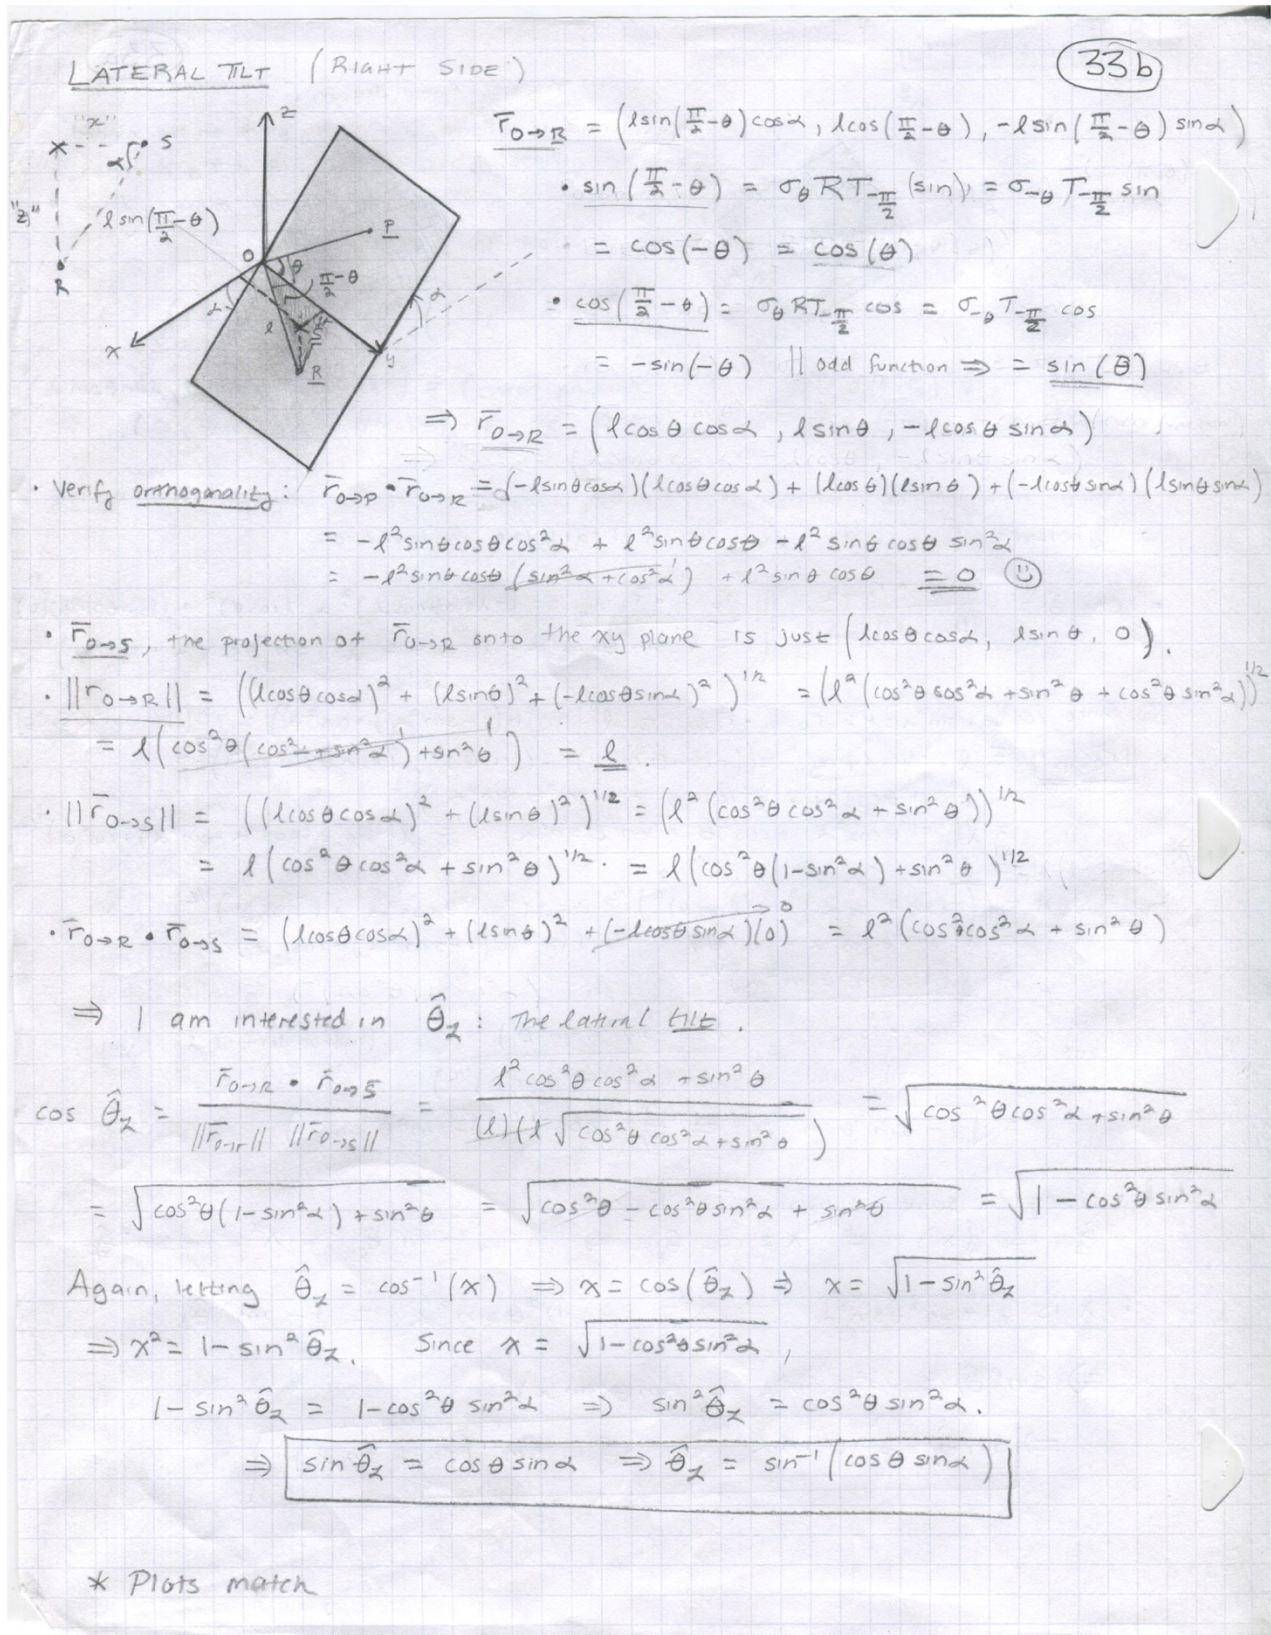 LATERAL TILT (RIGHT SIDE)
33b
"x"
S
α
"z"
l sin(π/2-θ)
R
z
O
P
θ
π/2-θ
α
l
S
R
x
y
α
r̄_{O→R} = (lsin(π/2-θ)cosα, lcos(π/2-θ), -lsin(π/2-θ) sinα)
• sin(π/2-θ) = σ_θ RT_{-π/2}(sin) = σ_{-θ} T_{-π/2} sin
= cos(-θ) = cos(θ)
• cos(π/2-θ) = σ_θ RT_{-π/2} cos = σ_{-θ} T_{-π/2} cos
= -sin(-θ) || odd function ⇒ = sin(θ)
⇒ r̄_{O→R} = (lcosθ cosα, lsinθ, -lcosθ sinα)
• Verify orthogonality: r̄_{O→P} • r̄_{O→R} = (-lsinθcosα)(lcosθcosα) + (lcosθ)(lsinθ) + (-lcosθsinα)(lsinθsinα)
= -l²sinθcosθcos²α + l²sinθcosθ - l² sinθ cosθ sin²α
= -l²sinθcosθ (sin²α + cos²α)¹ + l² sinθ cosθ = 0 ☺
• r̄_{O→S}, the projection of r̄_{O→R} onto the xy plane is just (lcosθcosα, lsinθ, 0).
• ||r_{O→R}|| = ((lcosθcosα)² + (lsinθ)² + (-lcosθsinα)²)^{1/2} = (l²(cos²θcos²α + sin²θ + cos²θ sin²α))^{1/2}
= l(cos²θ(cos² + sin²α)¹ + sin²θ)¹ = l.
• ||r̄_{O→S}|| = ((lcosθcosα)² + (lsinθ)²)^{1/2} = (l²(cos²θcos²α + sin²θ))^{1/2}
= l(cos²θcos²α + sin²θ)^{1/2}. = l(cos²θ(1-sin²α) + sin²θ)^{1/2}
• r̄_{O→R} • r̄_{O→S} = (lcosθcosα)² + (lsinθ)² + (-lcosθsinα)(0)→0 = l²(cos²θcos²α + sin²θ)
⇒ I am interested in θ̂_z: The lateral tilt.
cos θ̂_z = r̄_{O→R} • r̄_{O→S} / ||r̄_{O→r}|| ||r̄_{O→S}|| = l²cos²θcos²α + sin²θ / (l)(l√(cos²θcos²α + sin²θ)) = √(cos²θcos²α + sin²θ)
= √(cos²θ(1-sin²α) + sin²θ) = √(cos²θ - cos²θsin²α + sin²θ) = √(1 - cos²θsin²α)
Again, letting θ̂_z = cos⁻¹(x) ⇒ x = cos(θ̂_z) ⇒ x = √(1-sin²θ̂_z)
⇒ x² = 1-sin²θ̂_z. Since x = √(1-cos²θsin²α),
1-sin²θ̂_z = 1-cos²θ sin²α ⇒ sin²θ̂_z = cos²θsin²α.
⇒ sin θ̂_z = cosθsinα ⇒ θ̂_z = sin⁻¹(cosθsinα)
* Plots match